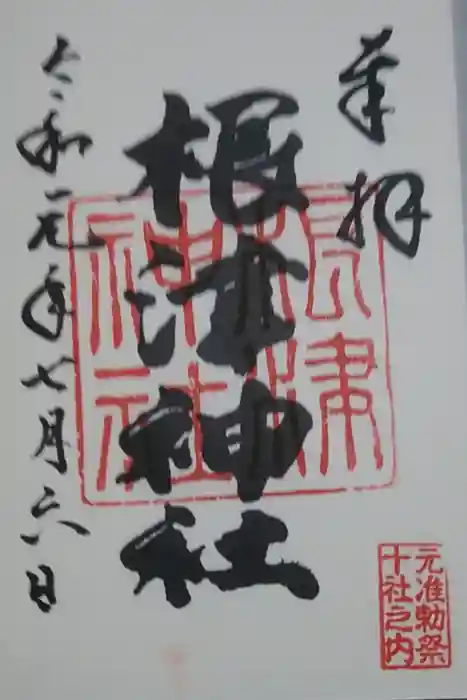 奉拝
根津神社
令和元年七月六日
根津
神社
元准勅祭
十社之内